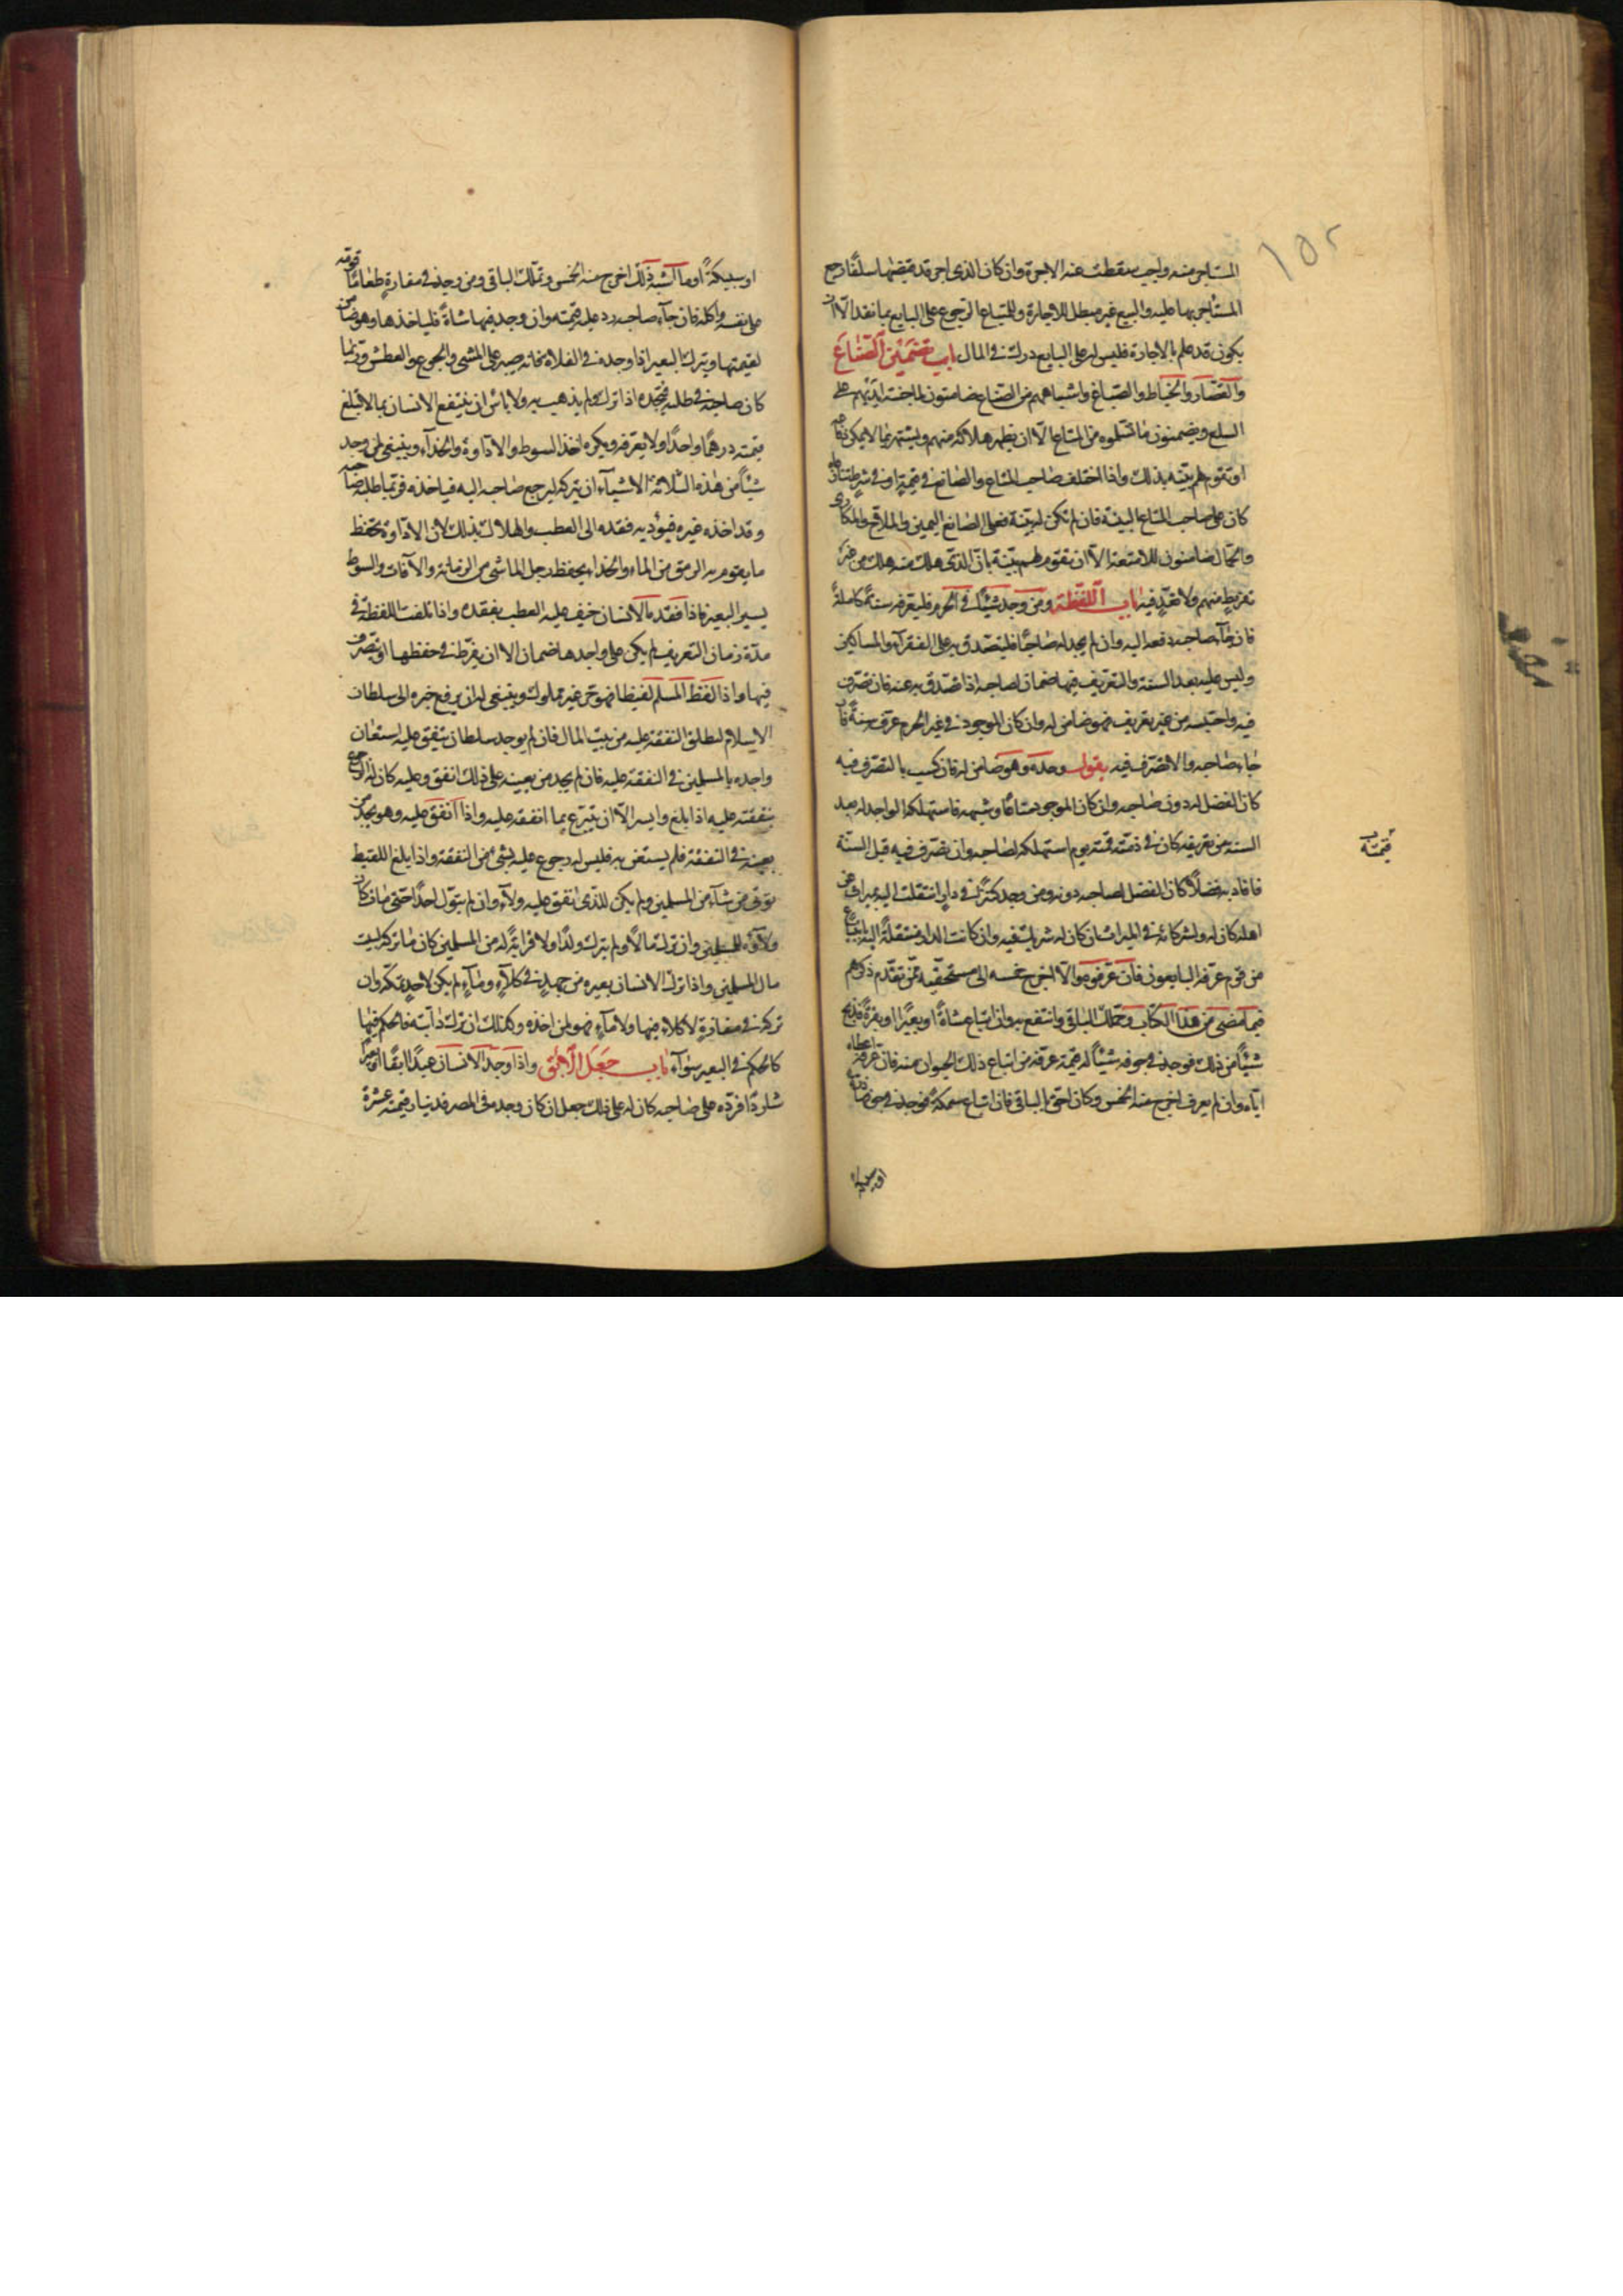 ١٥٢
المستاجر منه واجب سقطت عنه الاجرة وان كان الذى اجر قد قبضها سلفا رجع
المستأجر بها عليه والبيع غير مبطل للاجارة وللمبتاع الرجوع على البايع بما نقد الا ان
يكون قد علم بالاجارة فليس له على البايع درك فى المال باب تضمين الصناع
والقصار والخياط والصباغ واشباههم من الصناع ضامنون لما جنته ايديهم على
السلع ويضمنون ما تسلموه من المتاع الا ان يظهر هلاكه منهم ويشتهر بما لا يمكن دفاعه
او تقوم لهم بينة بذلك واذا اختلف صاحب المتاع والصانع فى قيمته او فى شرط
كان على صاحب المتاع البينة فان لم تكن له بينة فعلى الصانع اليمين والملاح والمكارى
والحمال ضامنون للامتعة الا ان تقوم لهم بينة بان الذى هلك منه هلك من غير
تفريط منهم ولا تعد فيه باب اللقطة ومن وجد شيئا فى الحرم فليعرفه سنة كاملة
فان جاء صاحبه دفعه اليه وان لم يجد له صاحبا فليتصدق به على الفقراء والمساكين
وليس عليه بعد السنة والتعريف فيها ضمان لصاحبه اذا تصدق به عنه فان تصرف
فيه واحتبسه من غير تعريف فهو ضامن له وان كان الموجود فى غير الحرم عرف سنة فان
جاء صاحبه والا تصرف فيه بقول وحده وهو ضامن له فان كسب بالتصرف فيه
كان الفضل له دون صاحبه وان كان الموجود متاعا وشبهه فاستهلكه الواجد له بعد
السنة من تعريفه كان فى ذمته قيمته يوم استهلكه لصاحبه وان تصرف فيه قبل السنة
فافاد به فضلا كان الفضل لصاحبه دونه ومن وجد كنزا فى دار انتقلت اليه بميراث عن
اهله كان له ولشركائه فى الميراث ان كان له شريك فيه وان كانت الدار منتقلة اليه بابتياع
من قوم عرف البايعون فان عرفوه والا اخرج خمسه الى مستحقيه ممن تقدم ذكرهم
فيما مضى من هذا الكتاب وتملك الباقى وانتفع به وان ابتاع شاة او بعيرا او بقرة فذبح
شيئا من ذلك فوجد فى جوفه شيئا له قيمة عرفه من ابتاع ذلك الحيوان منه فان عرفه اعطاه
اياه وان لم يعرف اخرج منه الخمس وكان احق بالباقى فان ابتاع سمكة فوجد فى جوفها
قيمته
او سبيكة
او سبيكة او ما اشبه ذلك اخرج منه الخمس وتملك الباقى ومن وجد فى مفازة طعاما قومه
على نفسه واكله فان جاء صاحبه رد عليه قيمته وان وجد فيها شاة فلياخذها وهو ضامن
لقيمتها ويترك البعير اذا وجده فى الفلاة فانه صبر على المشى والجوع والعطش وربما
كان صاحبه فى طلبه فيجده اذا ترك ولم يذهب به ولا باس ان ينتفع الانسان بما لا تبلغ
قيمته درهما واحدا ولا يعرفه ويكره اخذ السوط والاداوة والحذاء وينبغى لمن وجد
شيئا من هذه الثلاثة الاشياء ان يتركه ليرجع صاحبه اليه فياخذه فربما طلبه صاحبه
وقد اخذه غيره فيؤديه فقده الى العطب والهلاك بذلك لان الاداوة تحفظ
ما يقوم به الرمق من الماء والحذاء يحفظ رجل الماشى من الزمانة والآفات والسوط
يسير البعير فاذا فقده الانسان خيف عليه العطب بفقده واذا تلفت اللقطة فى
مدة زمان التعريف لم يكن على واجدها ضمان الا ان يفرط فى حفظها او يتصرف
فيها واذا لقط المسلم لقيطا فهو حر غير مملوك وينبغى له ان يرفع خبره الى سلطان
الاسلام لتطلق النفقة عليه من بيت المال فان لم يوجد سلطان ينفق عليه استعان
واجده بالمسلمين فى النفقة عليه فان لم يجد من يعينه على ذلك انفق عليه كان له الرجوع
بنفقته عليه اذا بلغ وايسر الا ان يتبرع بما انفقه عليه واذا انفق عليه وهو يجد من
يعينه فى النفقة فلم يستعن به فليس له رجوع عليه بشئ من النفقة واذا بلغ اللقيط
تولى من شاء من المسلمين ولم يكن للذى انفق عليه ولاء وان لم يتول احدا حتى مات كان
ولاؤه للمسلمين وان ترك مالا ولم يترك ولدا ولا قرابة له من المسلمين كان ما تركه لبيت
مال المسلمين واذا ترك الانسان بعيره من جهد فى كلاء وماء لم يكن لاحد تملكه وان
تركه فى مفازة لا كلاء فيها ولا ماء فهو لمن اخذه وكذلك ان ترك دابته فالحكم فيها
كالحكم فى البعير سواء باب جعل الآبق واذا وجد الانسان عبدا آبقا او بعيرا
شاردا فرده على صاحبه كان له على ذلك جعل ان كان وجده فى المصر فدينار قيمته عشرة